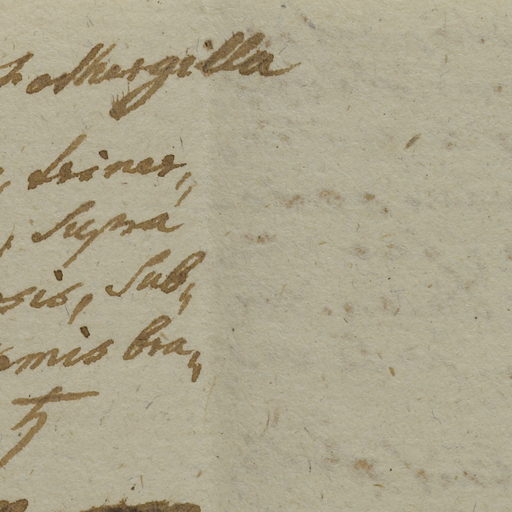 Fothergilla
, triner„
, supra
osis, sub„
emis bra„
♄